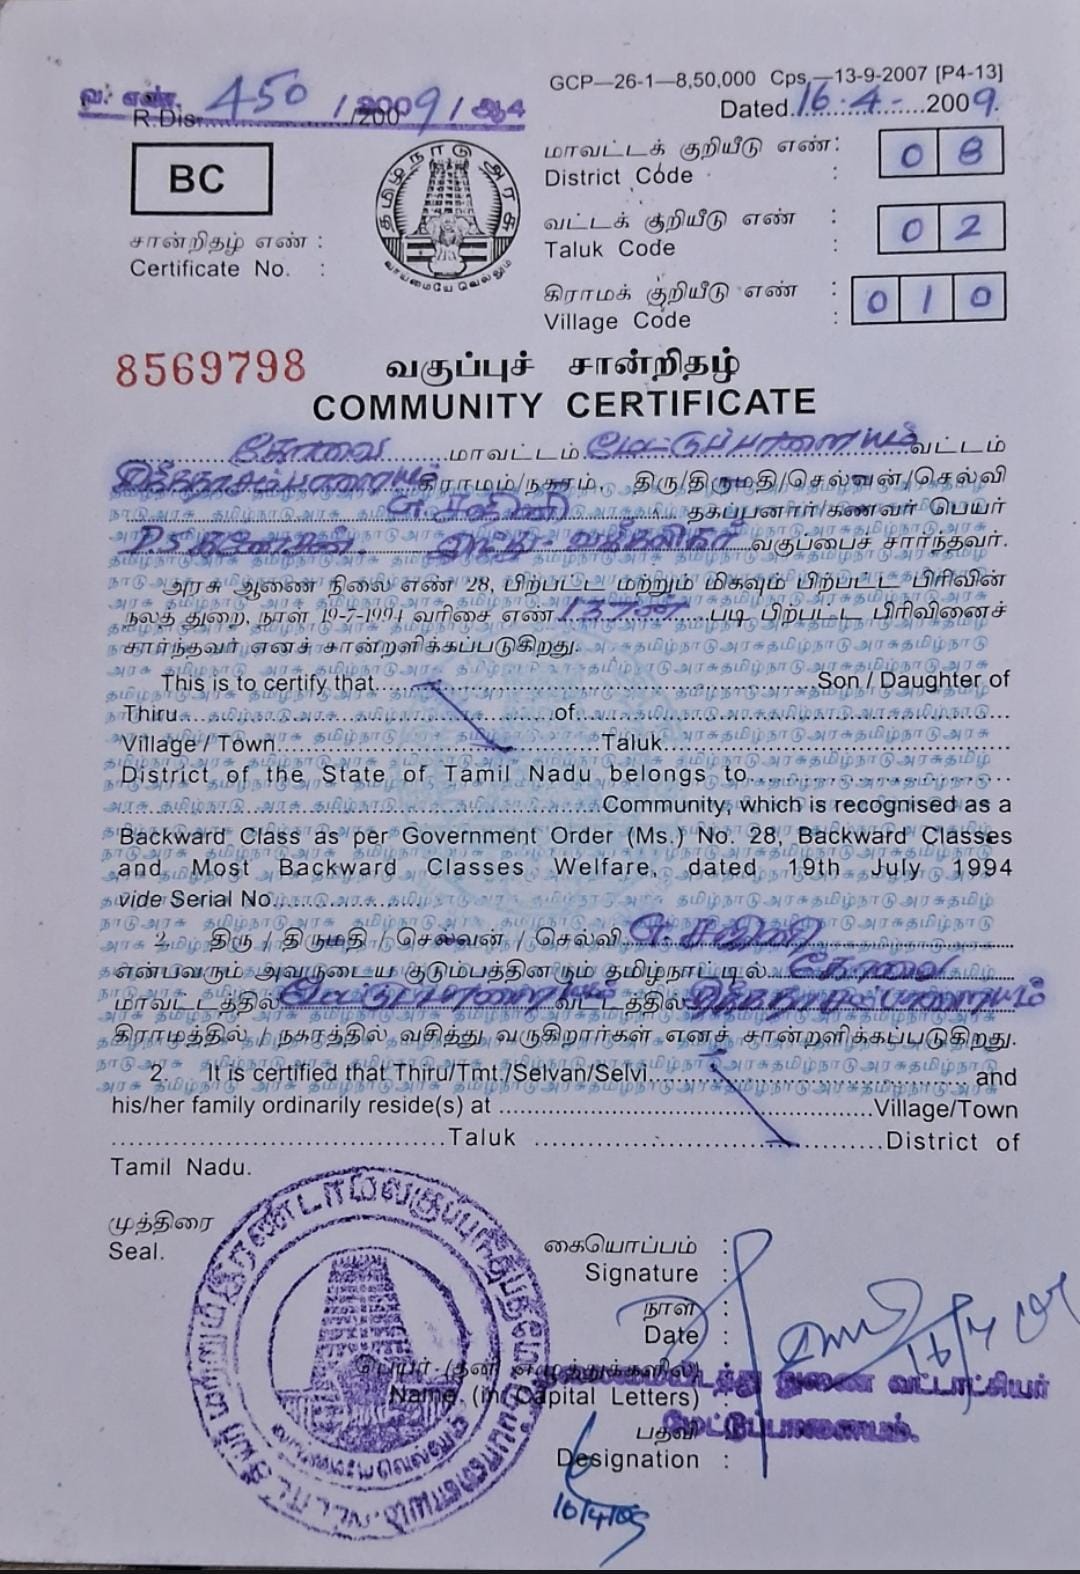 GCP—26-1—8,50,000 Cps.—13-9-2007 [P4-13]
வ. எண். 450 / 2009 / ஆ4
R.Dis. /200
Dated 16.4.- 2009.
BC
தமிழ்நாடு அரசு
வாய்மையே வெல்லும்
மாவட்டக் குறியீடு எண் : 0 8
District Code :
வட்டக் குறியீடு எண் : 0 2
Taluk Code :
கிராமக் குறியீடு எண் : 0 1 0
Village Code :
சான்றிதழ் எண் :
Certificate No. :
8569798
வகுப்புச் சான்றிதழ்
COMMUNITY CERTIFICATE
கோவை மாவட்டம் மேட்டுப்பாளையம் வட்டம்
கிராமம்/நகரம், திரு/திருமதி/செல்வன்/செல்வி
தகப்பனார்/கணவர் பெயர்
இந்து வகுப்பைச் சார்ந்தவர்.
அரசு ஆணை நிலை எண் 28, பிற்பட்ட மற்றும் மிகவும் பிற்பட்ட பிரிவின்
நலத் துறை, நாள் 19-7-1994 வரிசை எண் 137ன் படி பிற்பட்ட பிரிவினைச்
சார்ந்தவர் எனச் சான்றளிக்கப்படுகிறது.
This is to certify that Son / Daughter of
Thiru of
Village / Town Taluk
District of the State of Tamil Nadu belongs to
Community, which is recognised as a
Backward Class as per Government Order (Ms.) No. 28, Backward Classes
and Most Backward Classes Welfare, dated 19th July 1994
vide Serial No.
2. திரு / திருமதி / செல்வன் / செல்வி
என்பவரும் அவருடைய குடும்பத்தினரும் தமிழ்நாட்டில் கோவை
மாவட்டத்தில் மேட்டுப்பாளையம் வட்டத்தில்
கிராமத்தில் / நகரத்தில் வசித்து வருகிறார்கள் எனச் சான்றளிக்கப்படுகிறது.
2. It is certified that Thiru/Tmt./Selvan/Selvi and
his/her family ordinarily reside(s) at Village/Town
Taluk District of
Tamil Nadu.
முத்திரை
Seal.
கையொப்பம் :
Signature :
நாள் :
Date :
16/4/09
பெயர் (தனி எழுத்துக்களில்) :
Name (in Capital Letters) :
துணை வட்டாட்சியர்
மேட்டுப்பாளையம்.
பதவி :
Designation :
16/4/09